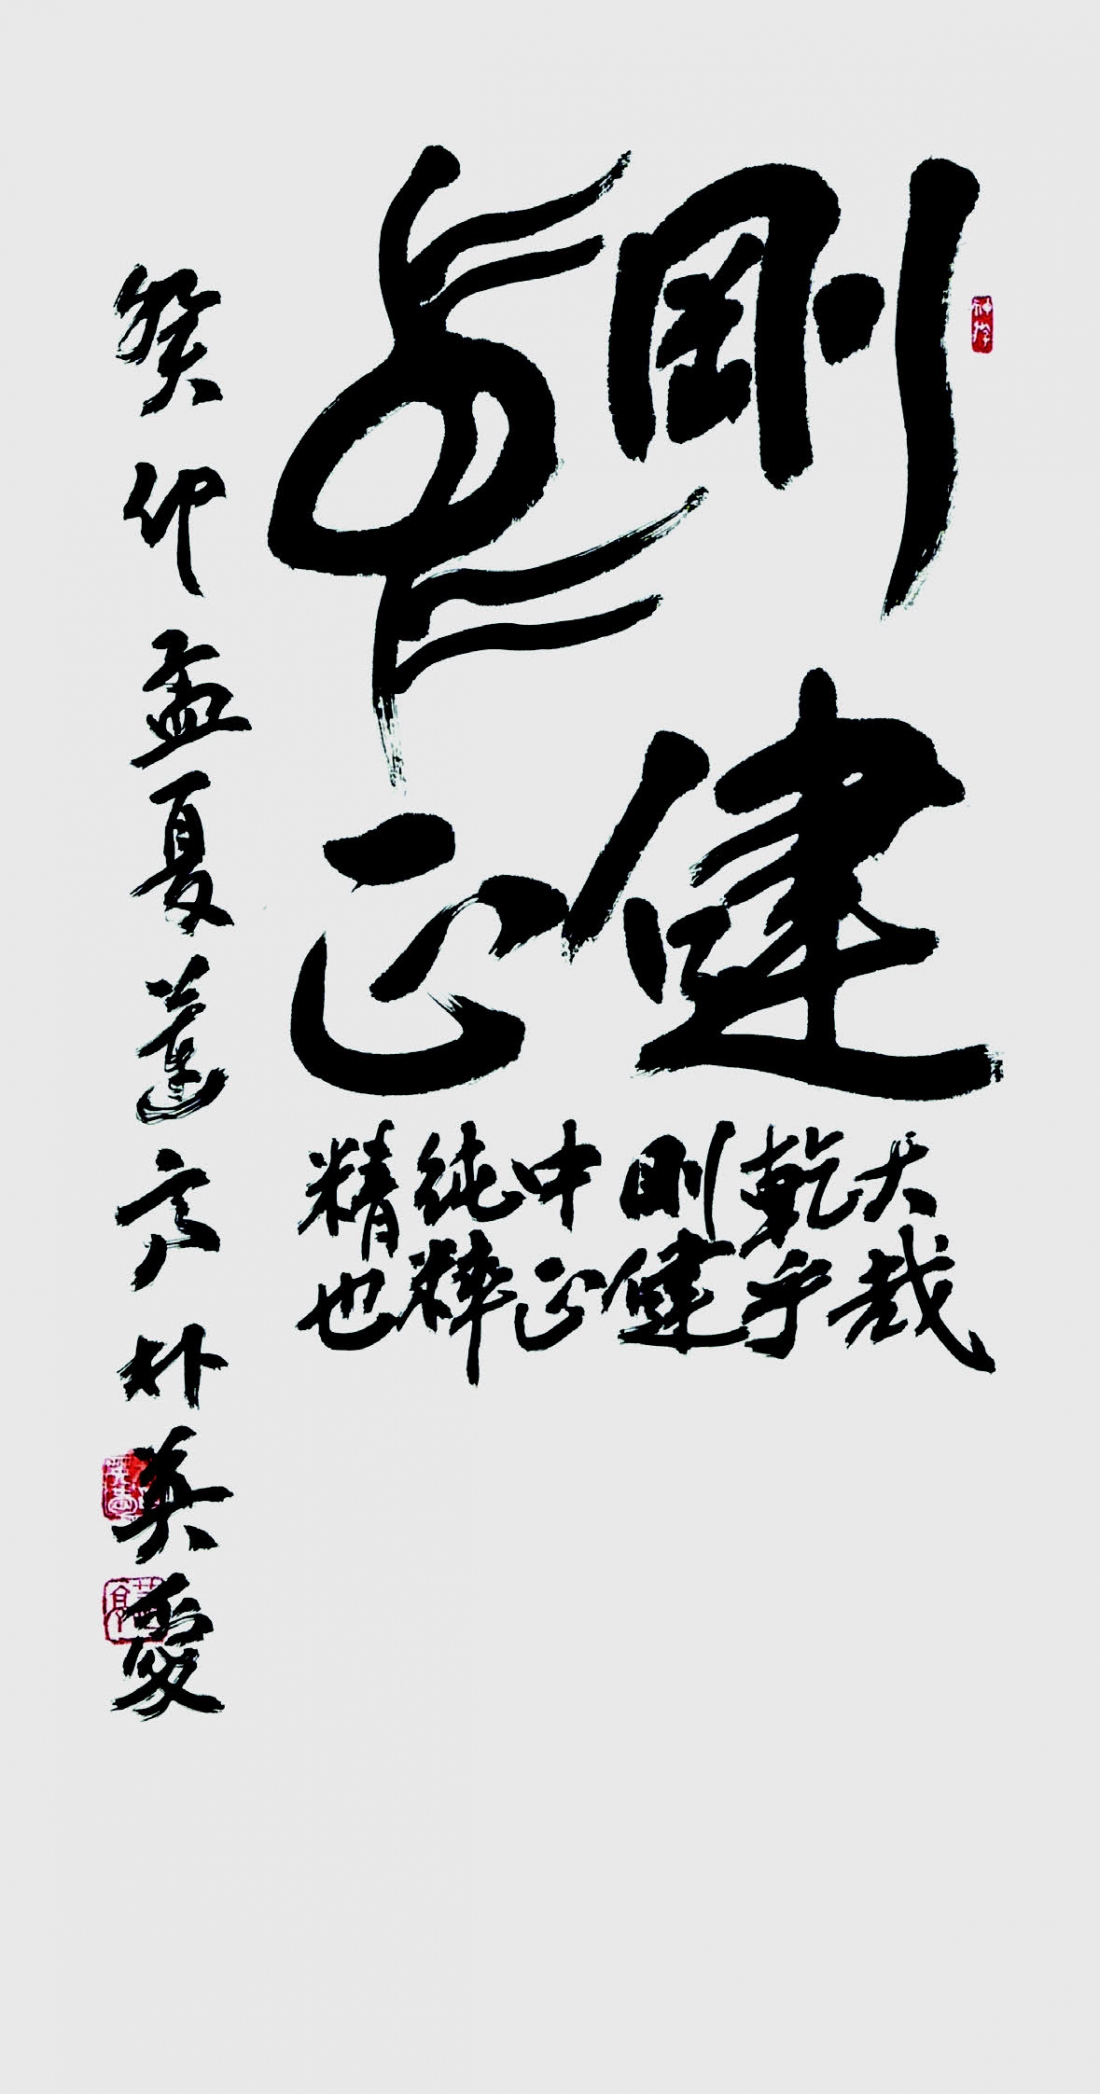 剛健
中正
大哉
乾乎
剛健
中正
純粹
精也
癸卯孟夏蓮亭朴英愛